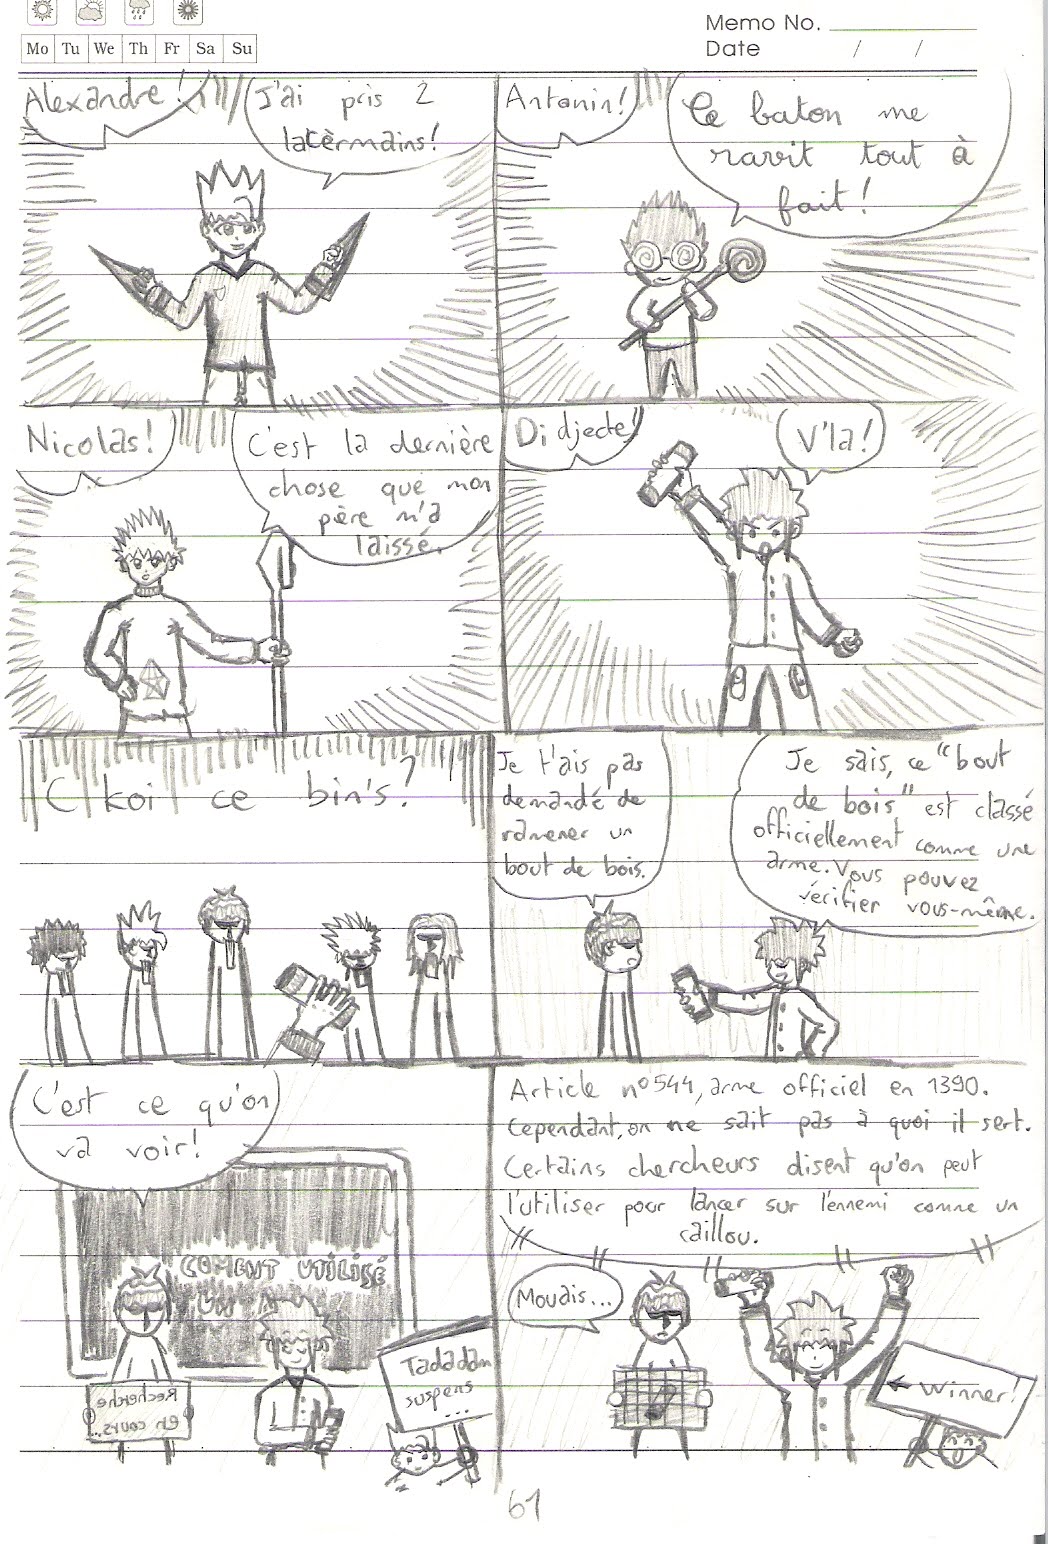 Memo No.
Mo Tu We Th Fr Sa Su
Date / /
Alexandre!
J'ai pris 2
latèrmains!
Antonin!
Ce baton me
ravit tout à
fait!
Nicolas!
C'est la dernière
chose que mon
père m'a
laissé.
Didjecte!
V'la!
C koi ce bin's?
Je t'ais pas
demandé de
ramener un
bout de bois.
Je sais, ce "bout
de bois" est classé
officiellement comme une
arme. Vous pouvez
vérifier vous-même.
C'est ce qu'on
va voir!
COMENT UTILISÉ
UN
Recherche
en cours...
Tadadan
suspens
...
Article n°544, arme officiel en 1390.
Cependant, on ne sait pas à quoi il sert.
Certains chercheurs disent qu'on peut
l'utiliser pour lancer sur l'ennemi comme un
caillou.
Mouais...
Winner!
61